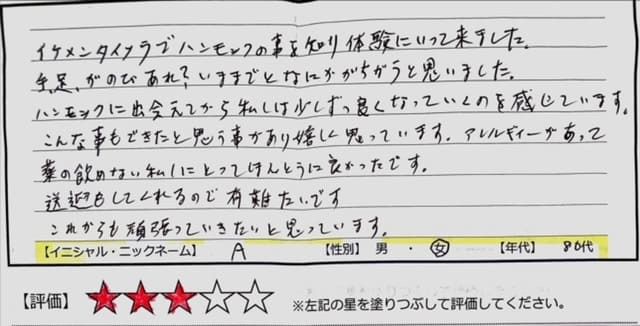 イケメンタイクラでハンモックの事を知り体験にいって来ました。
手、足、がのびあれ?いままでとなにかがちがうと思いました。
ハンモックに出会えてから私しは少しずつ良くなっていくのを感じています。
こんな事もできたと思う事があり嬉しく思っています。アレルギーがあって
薬の飲めない私しにとってはほんとうに良かったです。
送迎もしてくれるので有難たいです
これからも頑張っていきたいと思っています。
【イニシャル・ニックネーム】 A 【性別】 男 ・ 女 【年代】 80代
【評価】 ★★★☆☆ ※左記の星を塗りつぶして評価してください。